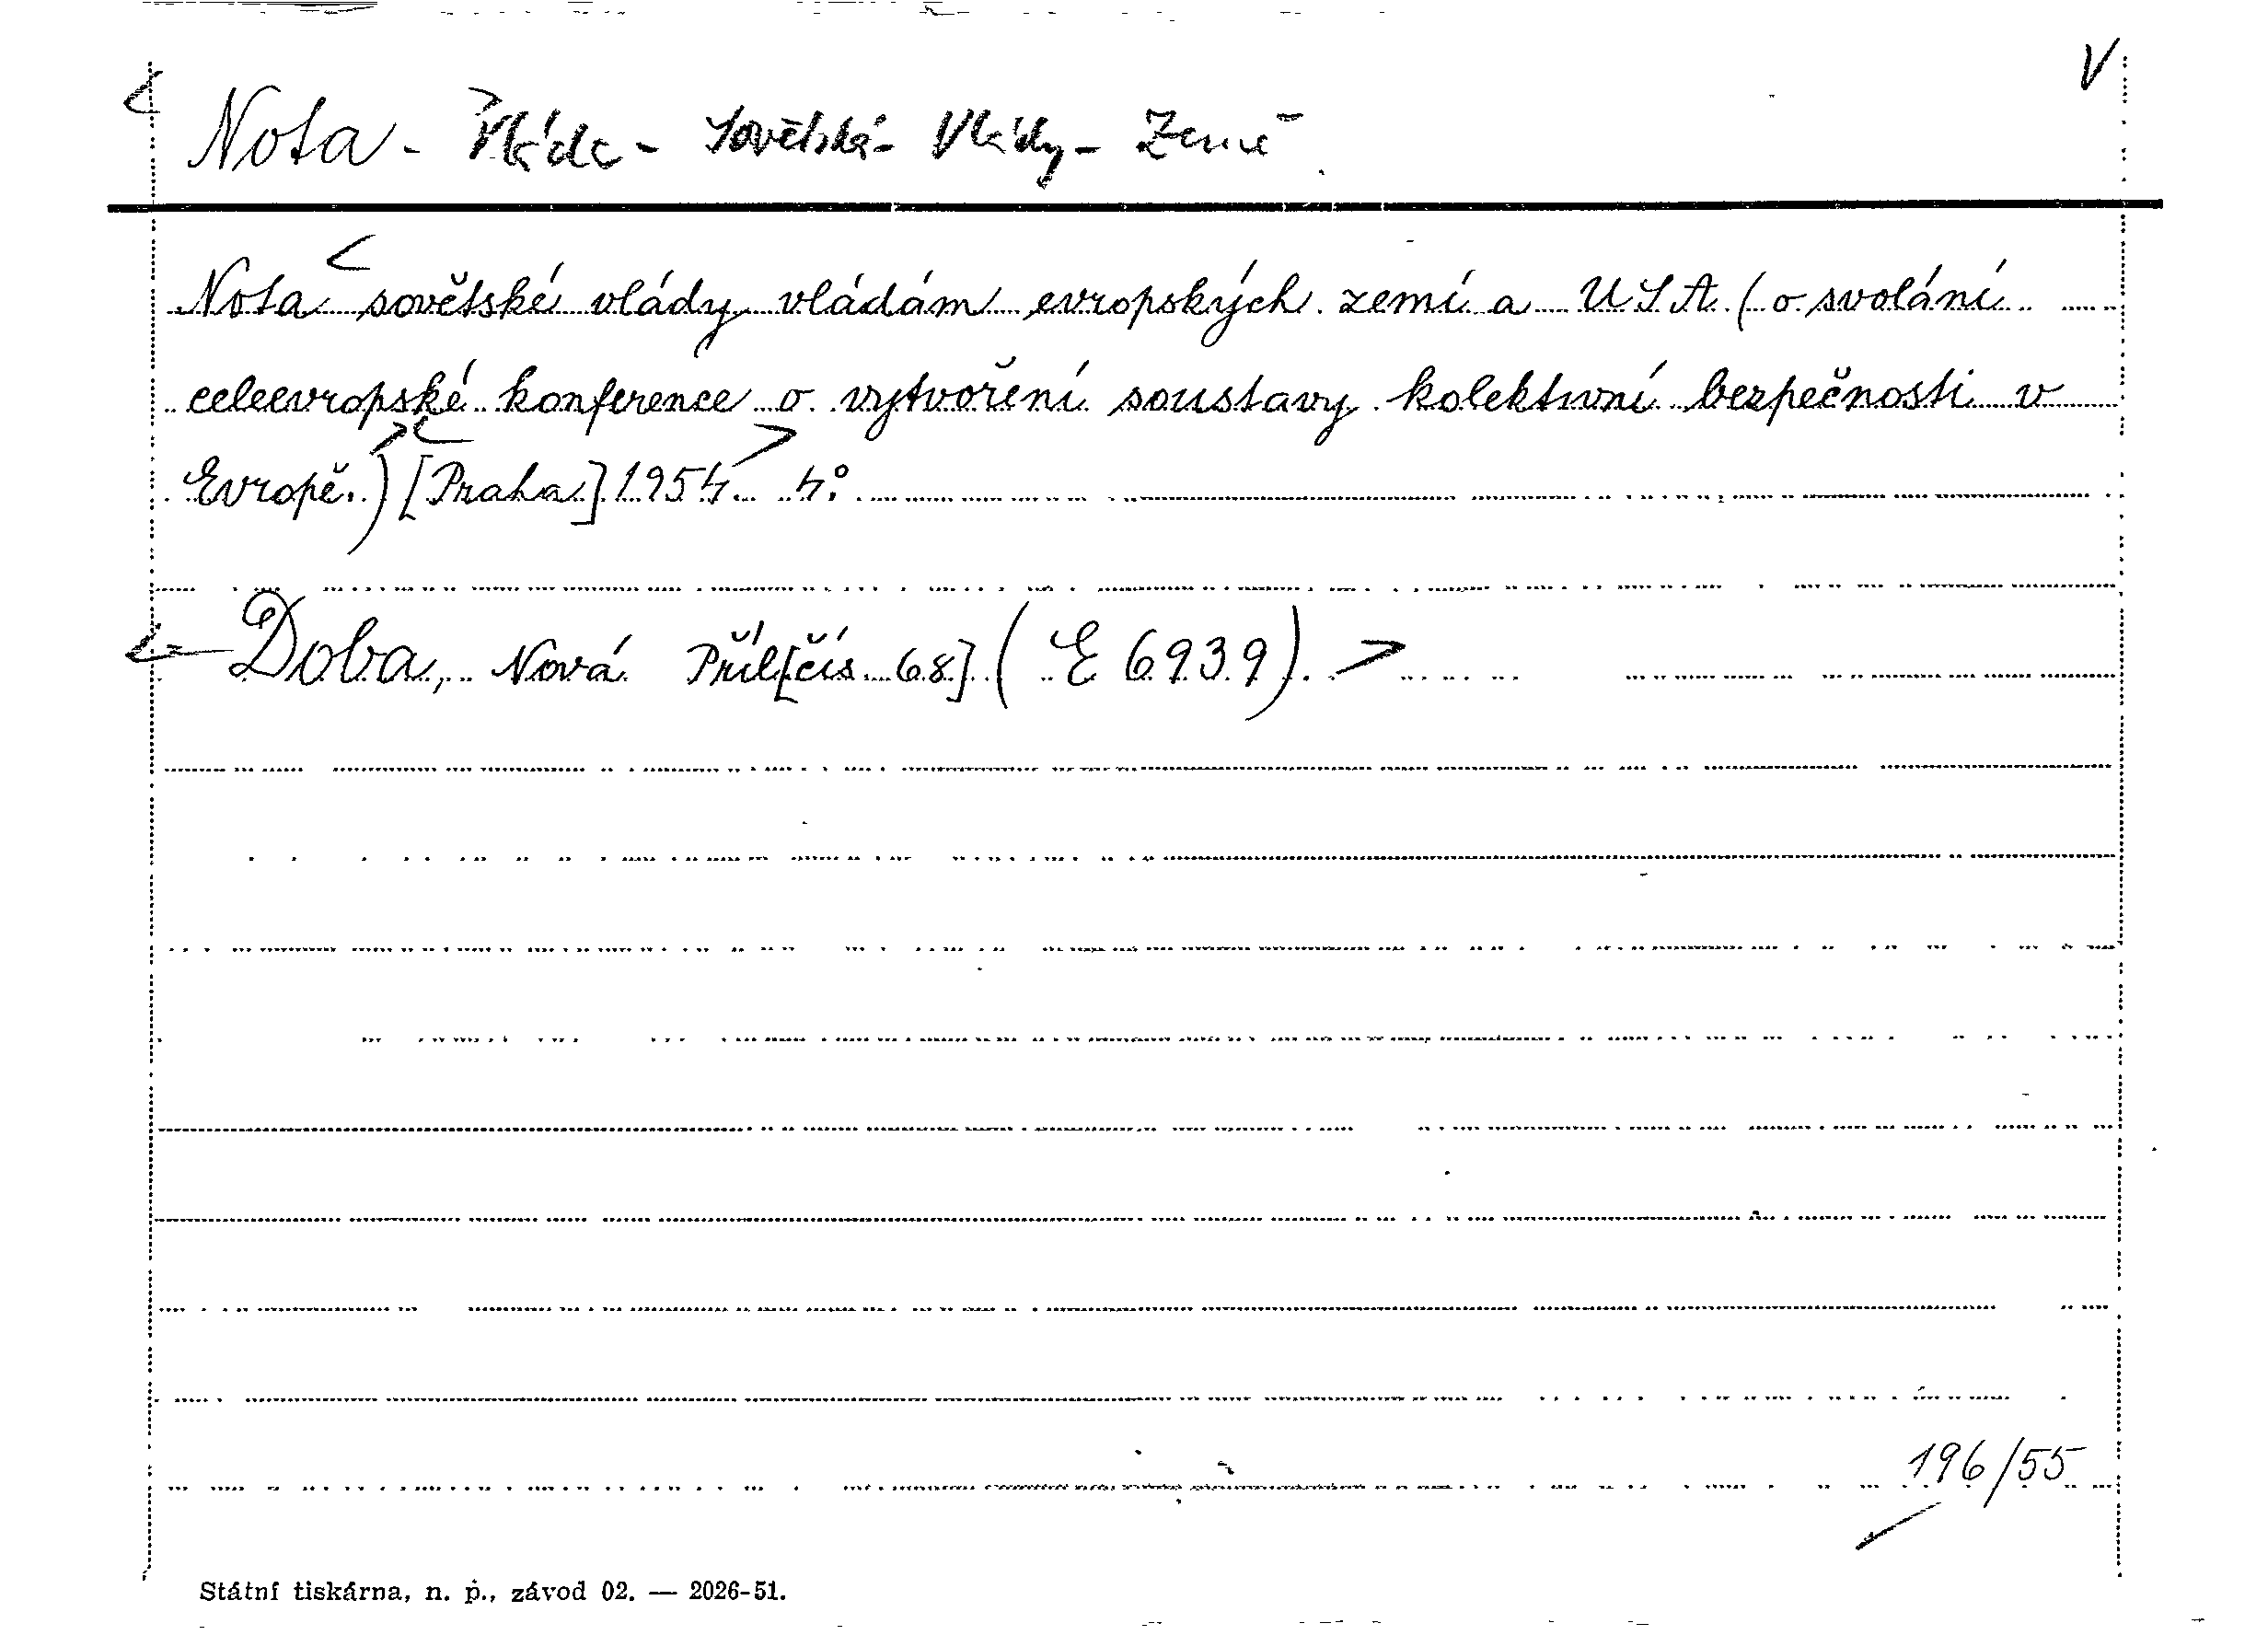 V
Nota - Vláda - Sovětská - Vlády - Země
Nota sovětské vlády vládám evropských zemí a USA (o svolání
celeevropské konference o vytvoření soustavy kolektivní bezpečnosti v
Evropě.) [Praha] 1954 4°
Doba, Nová Příl[čís 68] (E 6939).
196/55
Státní tiskárna, n. p., závod 02. — 2026-51.